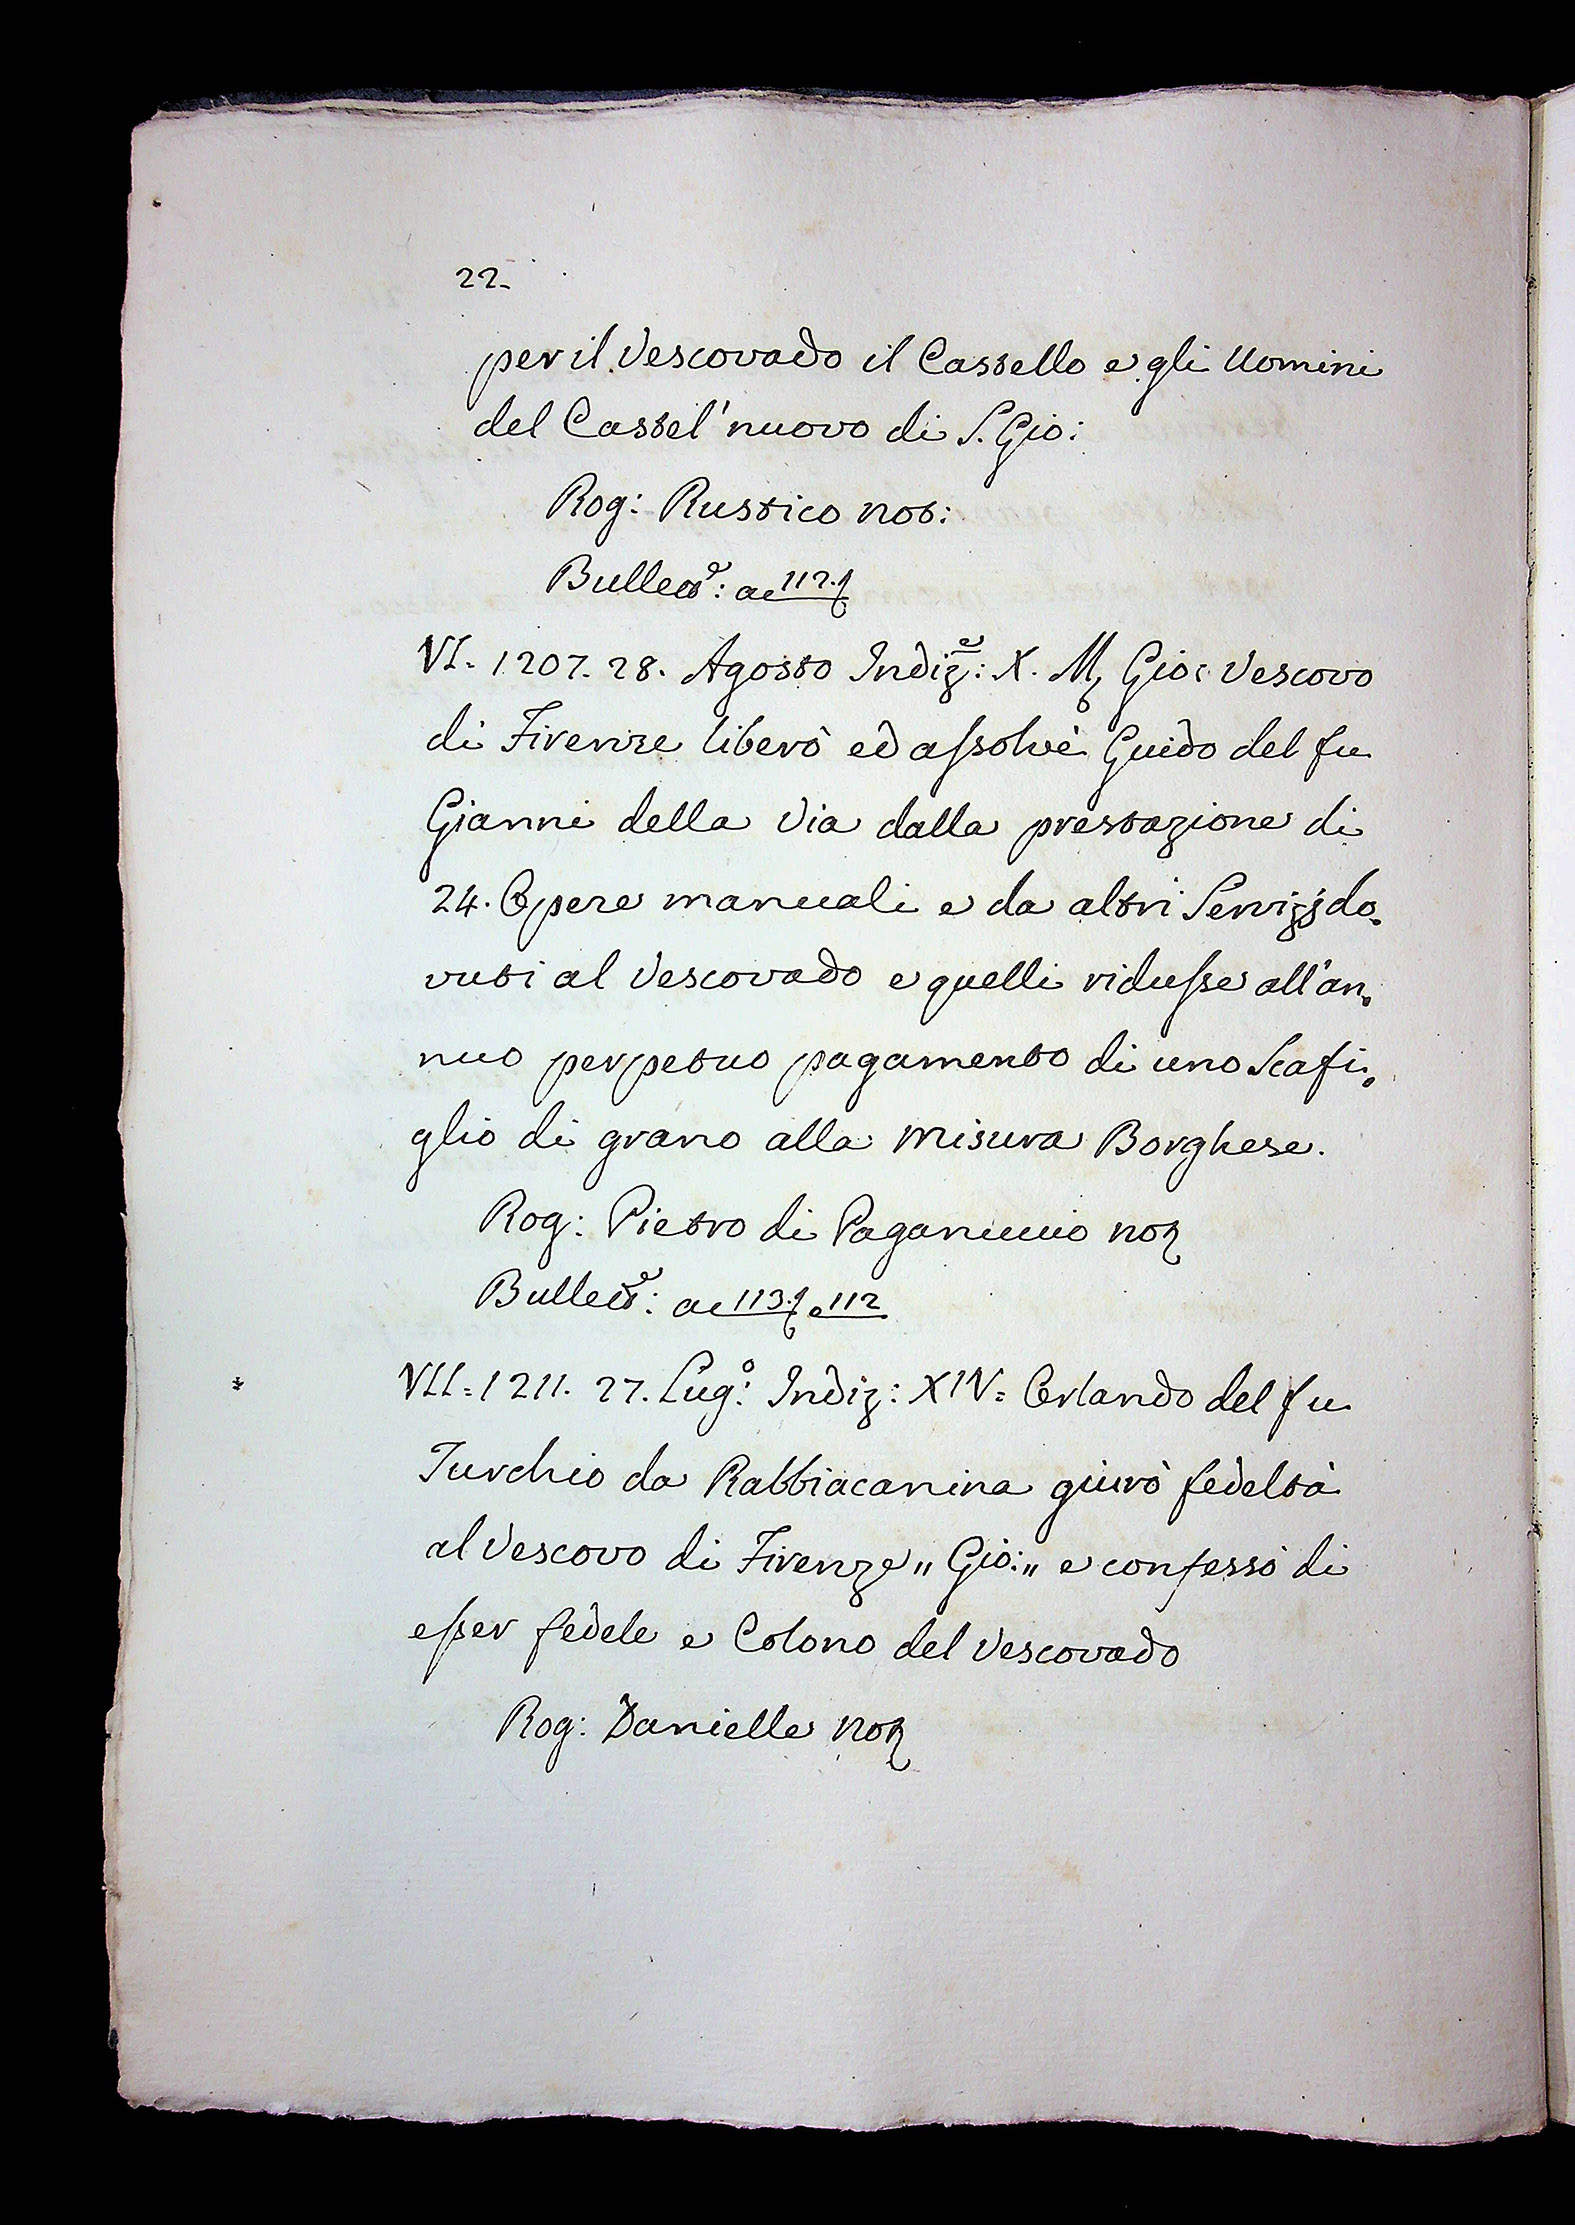 22.
per il Vescovado il Castello e gli Uomini
del Castel'nuovo di S. Gio:
Rog: Rustico not:
Bullett.e: a c 112.
VI. 1207. 28. Agosto Indiz.e: X. M. Gio: Vescovo
di Firenze liberò ed assolvè Guido del fu
Gianni della Via dalla prestazione di
24. Opere manuali e da altri Servizj do,
vuti al Vescovado e quelli ridusse all'an,
nuo perpetuo pagamento di uno Scafi,
glio di grano alla misura Borghese.
Rog: Pietro di Paganuccio not
Bullett.e: a c 113. e 112
VII = 1211. 27. Lug.o: Indiz: XIV = Orlando del fu
Turchio da Rabbiacanina giurò fedeltà
al Vescovo di Firenze „ Gio: „ e confessò di
esser fedele e Colono del Vescovado
Rog: Danielle not